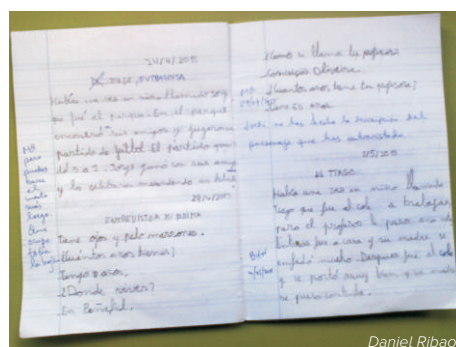 24/4/2015
Había una vez un niño llamado Jorge
que fué al parque. En el parque
encontró sus amigos y jugaron
partido de fútbol. El partido
5 a 5. Jorge ganó con sus amigos
y lo celebraron
MB
pero
puedes
hacer
el
cuento
más
largo
28/4/2015
ENTREVISTA
Tiene ojos y pelo marrones.
¿Cuántos años tienes?
Tengo 8 años.
¿Donde vives?
En Peñafiel.
¿Como se llama tu profesora?
Concepção Oliveira.
¿Cuantos años tiene tu profesora?
Tiene 65 años.
MB
no has hecho la descripción del
personaje que has entrevistado
1/5/2015
EL TIAGO
Había una vez un niño llamado
Tiago que fue al cole a trabajar,
pero el profesor le puso una
Entonces fue a casa y su madre se
enfadó mucho. Despues fue al cole
y se portó muy bien y su madre
se puso contenta.
Bien
Daniel Ribao